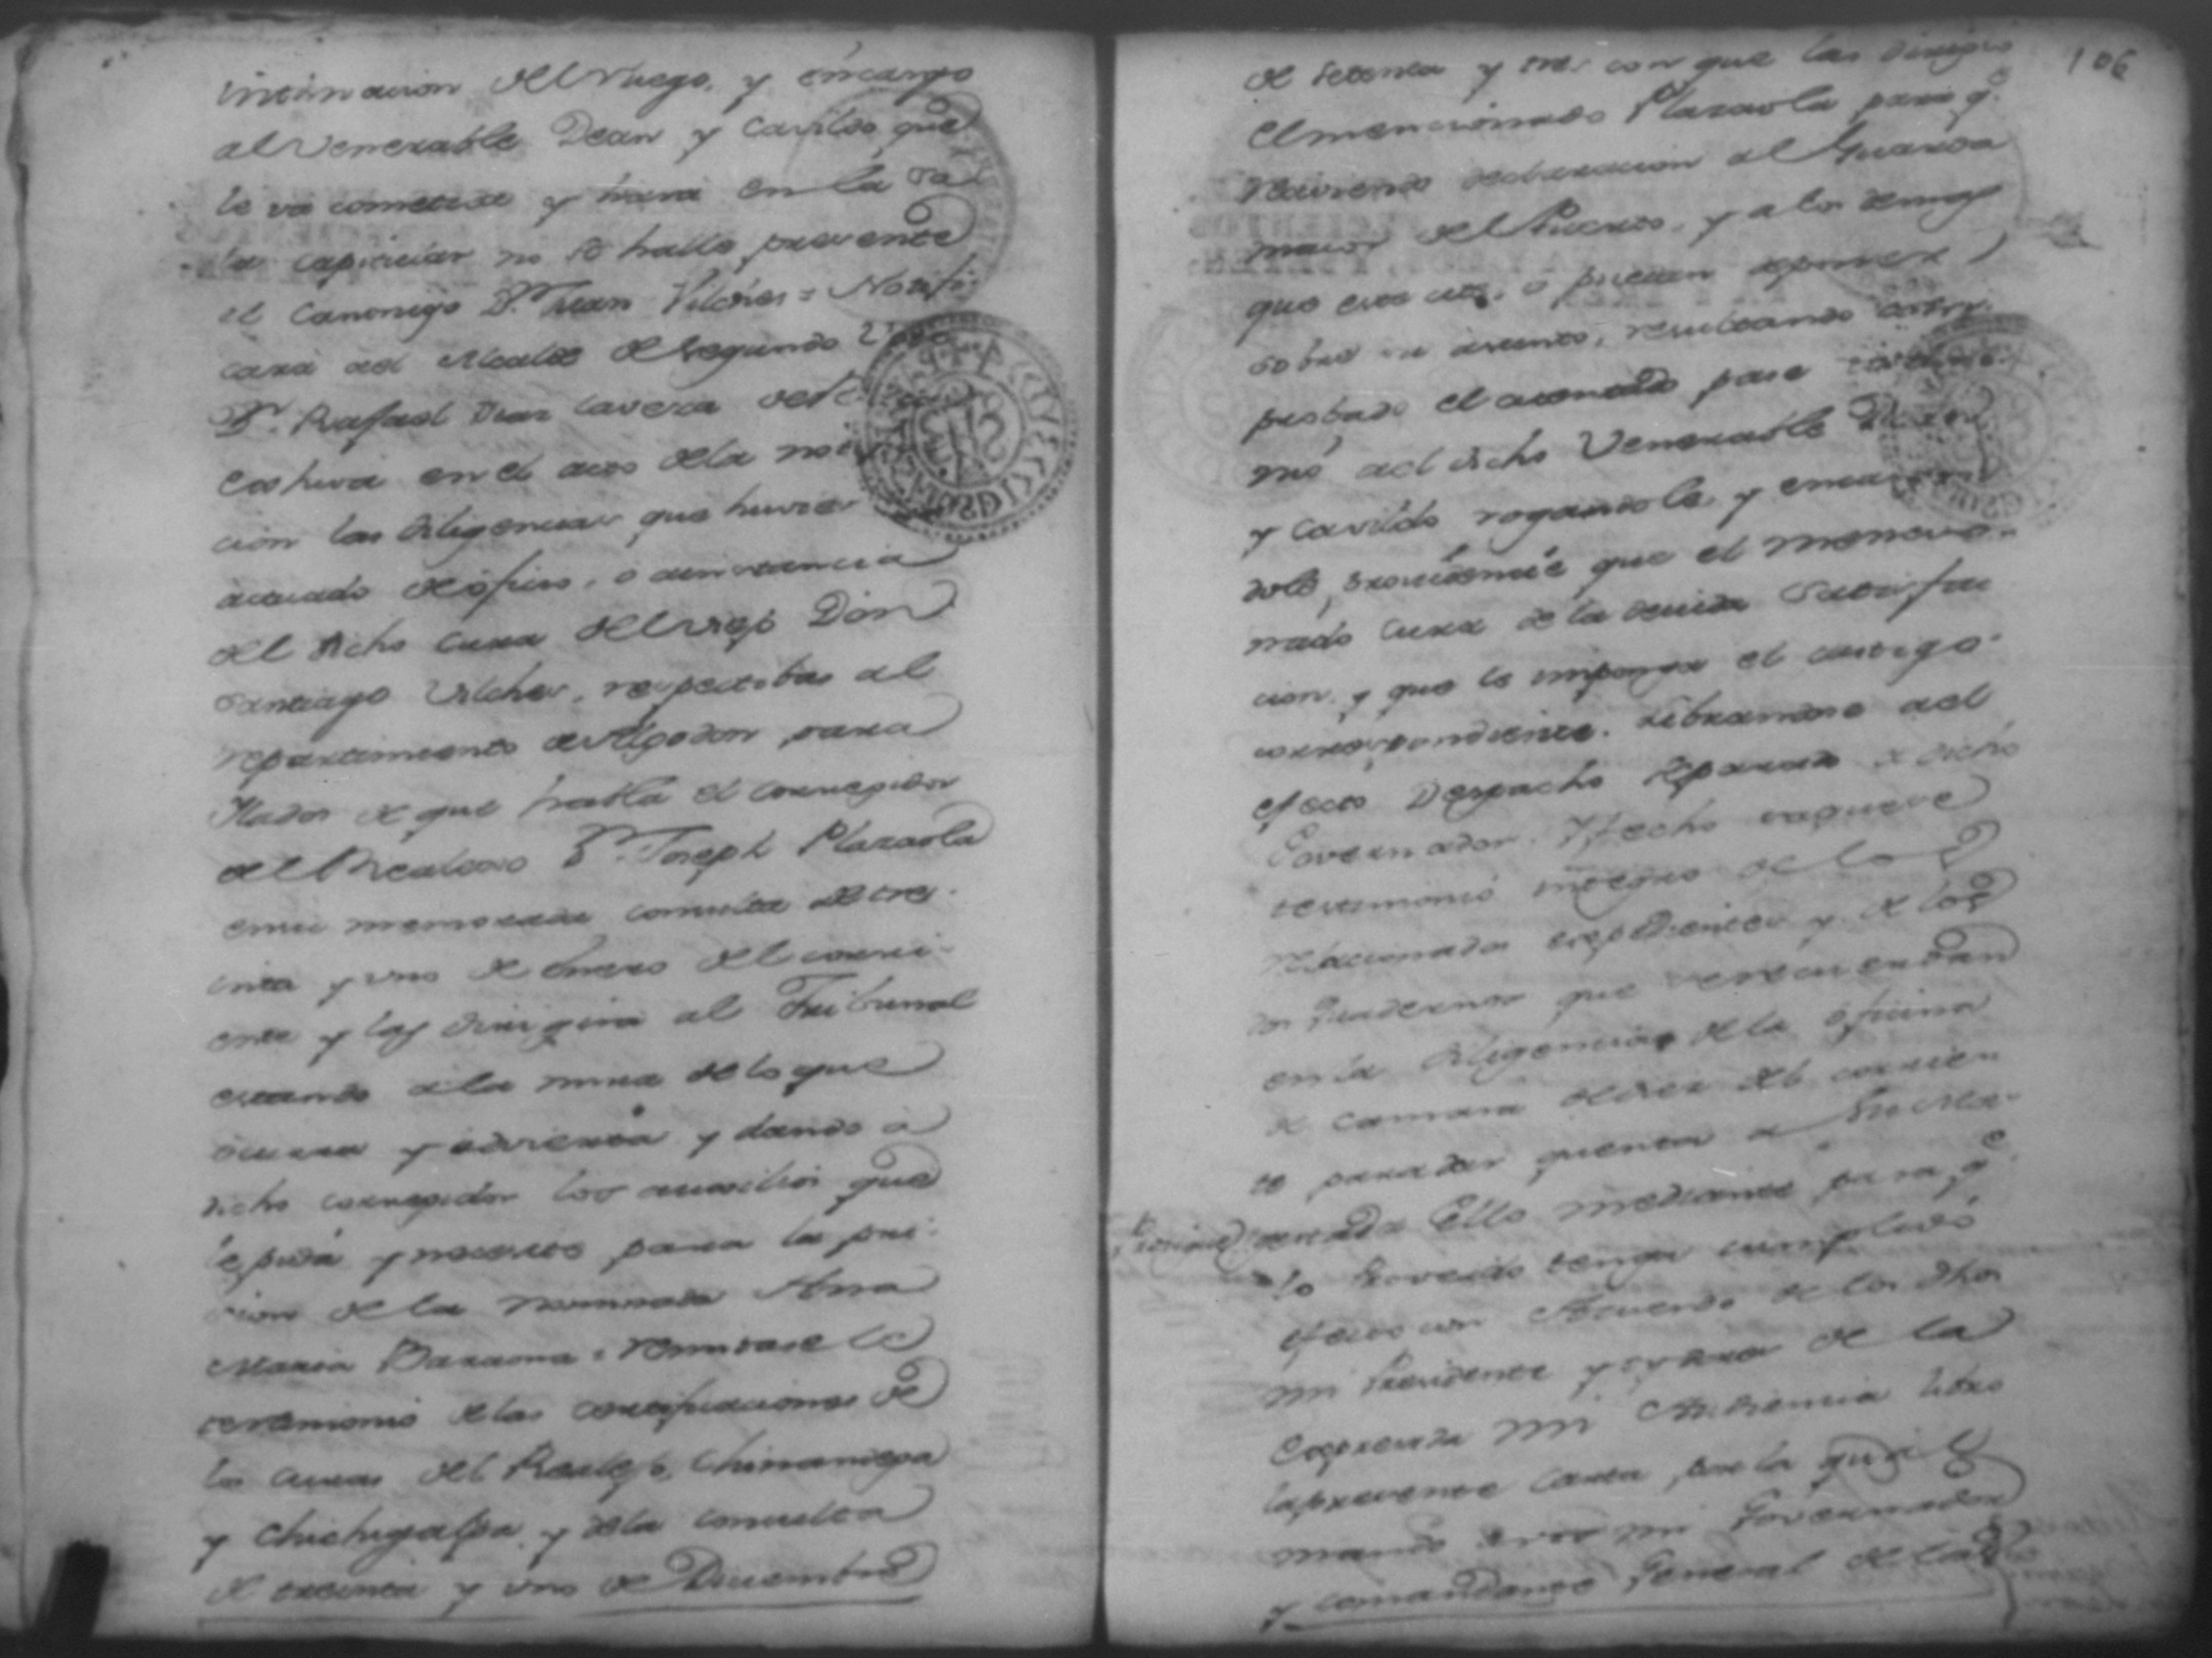 intimacion del ruego, y encargo
al Venerable Dean y Cavildo que
le va cometida y hará en la sa
la capitular no se halle presente
el Canonigo Dn. Juan Vilches = Notifi
cará al Alcalde de segundo
Dn. Rafael Diaz Cavera
exhiva en el acto de la
cion las diligencias que huvier
actuado de ofisio, o a instancia
del dicho Cura del viejo Don
Santiago Vilches, respectibas al
repartimiento de Algodon para
Ilados de que habla el corregidor
del Realexo Dn. Joseph Plazaola
en su memorada consulta de tre-
inta y uno de Enero del corri-
ente y las dirigirá al Tribunal
estando a la mira de lo que
ocurra y advierta y dando a
dicho corregidor los auxilios que
le pida y nesesite para la pri-
cion de la nominada Ana
Maria Baraona = remitase le
testimonio de las certificaciones de
los curas del Realejo, Chinandega
y Chichigalpa, y de la consulta
de treinta y uno de Diciembre
106
de setenta y tres con que las dirigio
el mencionado Plazaola para q.e
reciviendo declaracion al Guarda
maior del Puerto, y a los demas
que este cite, o puedan deponer
sobre su asunto, resultando com-
probado el atentado pase
mo al dicho Venerable Dean
y Cavildo rogandole y encargan
dole, providencie que el mencio-
nado Cura de la devida satisfac
cion, y que le imponga el castigo
correspondiente. Librandose al
efecto Despacho separado a dicho
Governador. Y fecho saquese
testimonio integro de los
relacionados expedientes y de los
dos quadernos que
en la diligencia de la oficina
de Camara de diez del corrien
te para dar quenta a Su Ma-
gestad = Ello mediante para q.e
lo Proveido tenga cumplido
efecto con Acuerdo de los dhos
mi Presidente y oydores de la
expresada mi Audiencia libro
la presente carta por la qual
mando a vos mi Governador
y comandante General de la